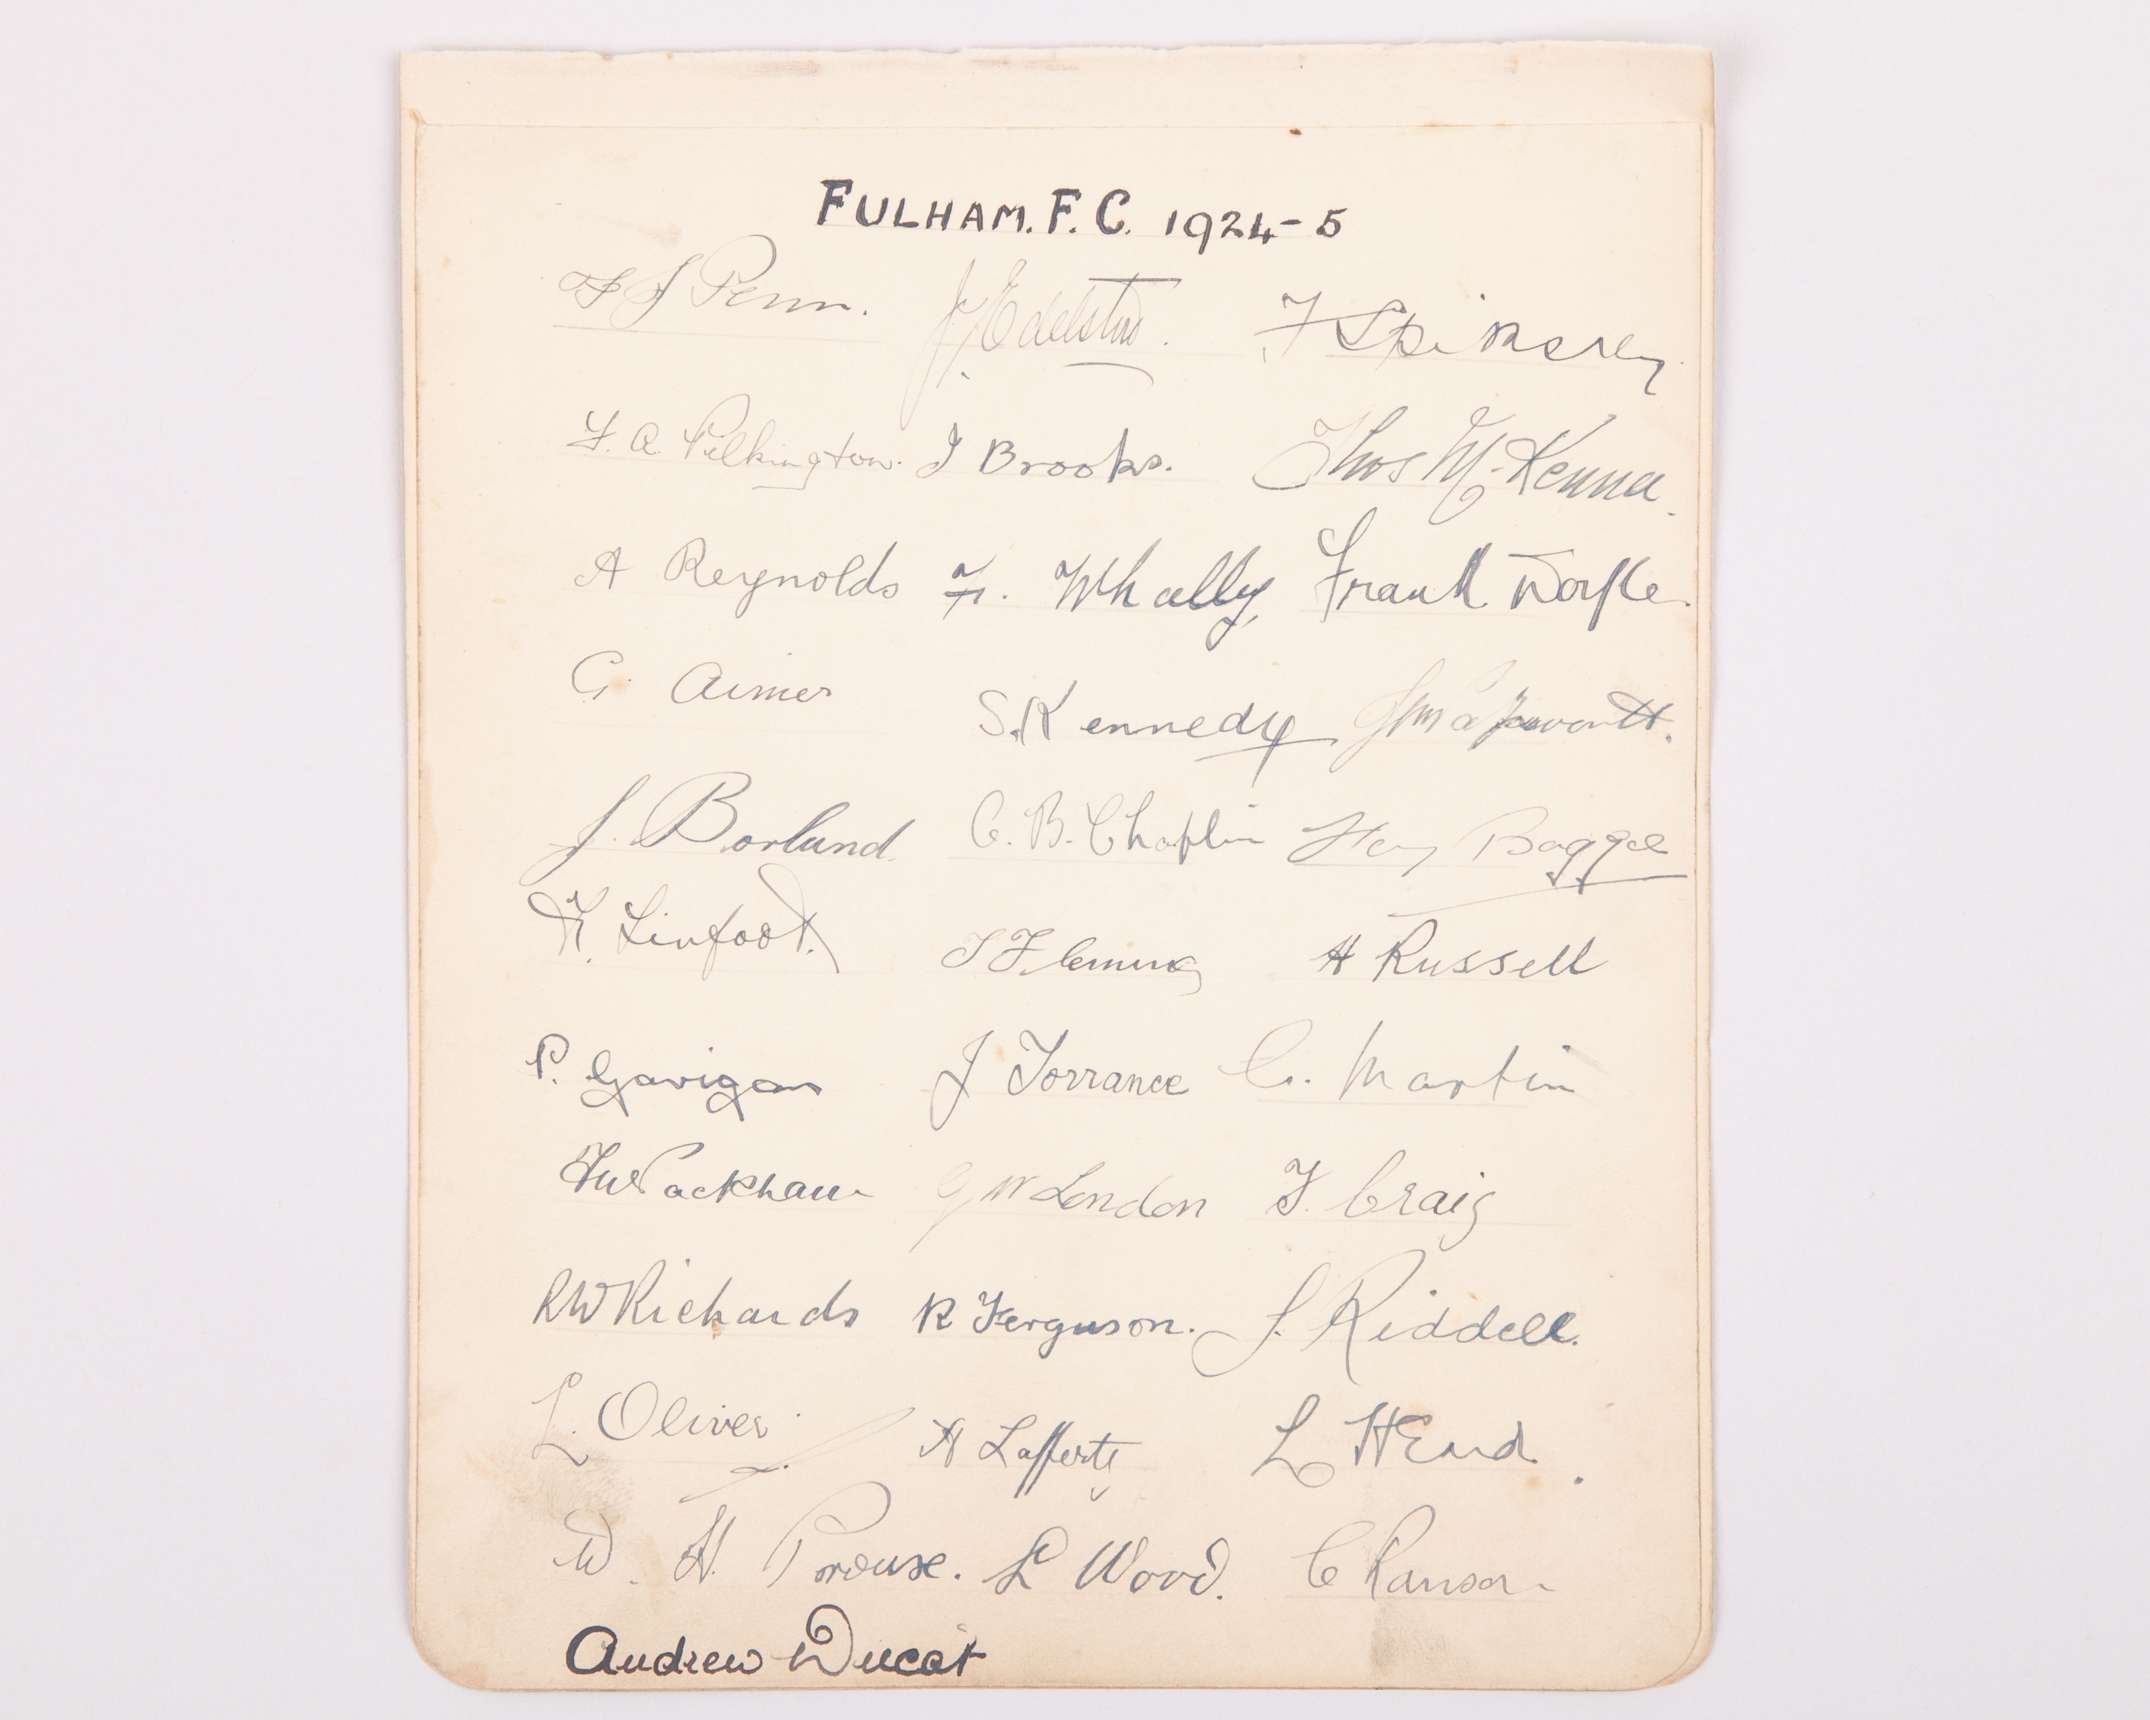 FULHAM. F. C. 1924-5
F J Penn. J. Edelston. F Spiksley
F. A. Pilkington. J Brooks. Thos McKenna.
A Reynolds F. Whally Frank Doyle.
G. Aimer S. Kennedy
J. Borland C. B. Chaplin Hy Bagge
F. Linfoot. J Fleming H Russell
P. Gavigan J Torrance G. Martin
FW Packham GW London T. Craig
RW Richards R Ferguson. J. Riddell.
L. Oliver H Lafferty L Head.
W. H. Prouse. L Wood. C Ranson
Andrew Ducat